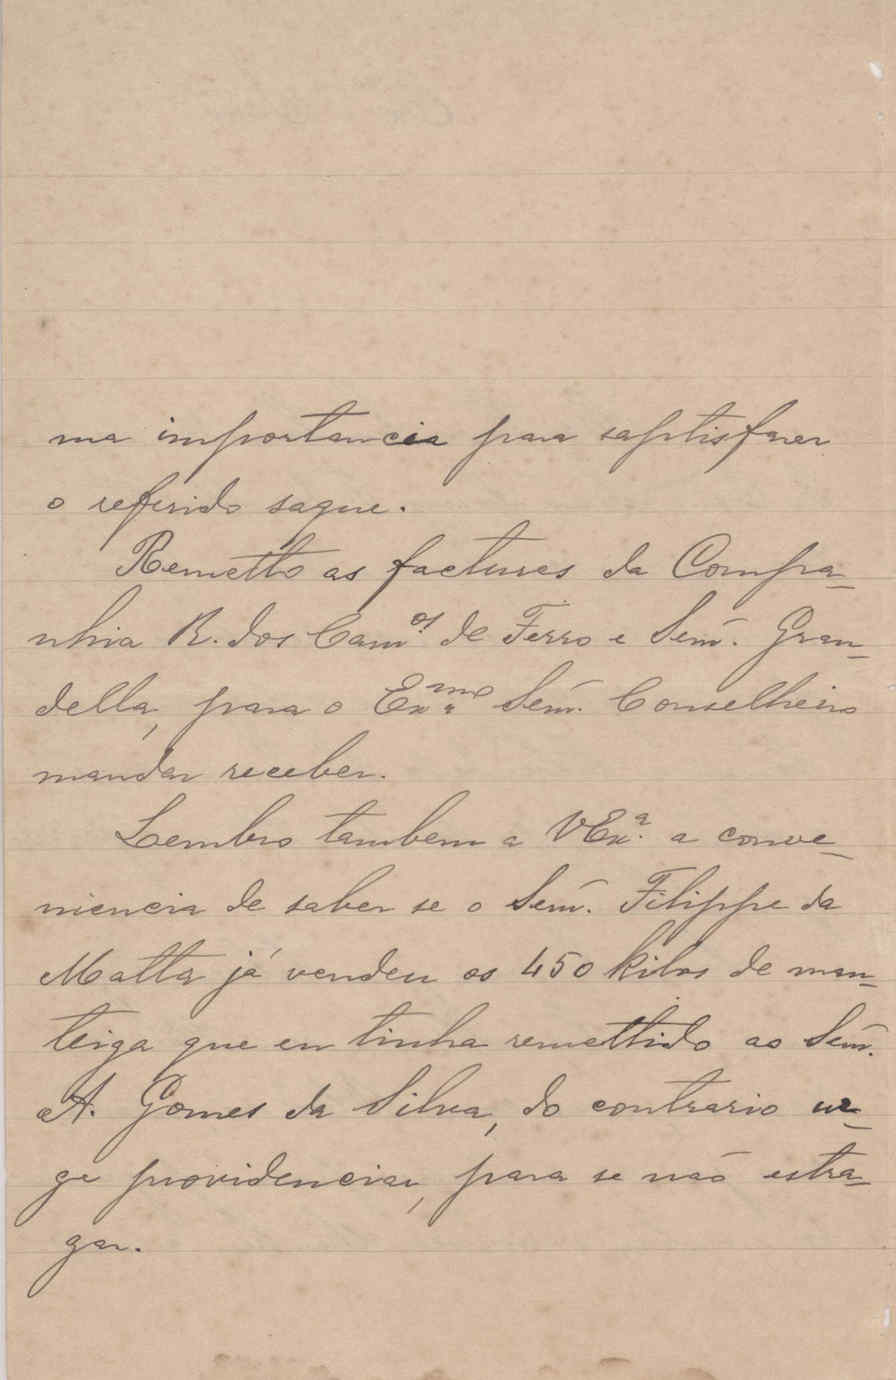 ma importancia para saptisfazer
o referido saque.
Remetto as factures da Compa-
nhia R. dos Cam.os de Ferro e Senr. Gran-
della, para o Exmo Senr. Conselheiro
mandar receber.
Lembro tambem a VExa. a conve-
niencia de saber se o Senr. Filippe da
Matta já vendeu os 450 kilos de man-
teiga que eu tinha remettido ao Senr.
A. Gomes da Silva, do contrario ur-
ge providenciar, para se não estra-
gar.